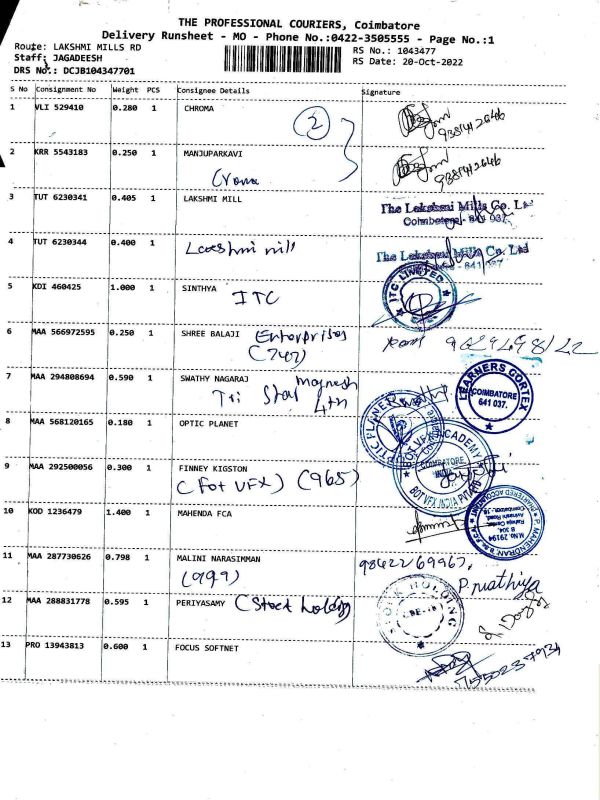 THE PROFESSIONAL COURIERS, Coimbatore
Delivery Runsheet - MO - Phone No.:0422-3505555 - Page No.:1
Route: LAKSHMI MILLS RD
RS No.: 1043477
Staff: JAGADEESH
RS Date: 20-Oct-2022
DRS No.: DCJB104347701
S No Consignment No Weight PCS Consignee Details Signature
1 VLI 529410 0.280 1 CHROMA
2
9381412646
2 KRR 5543183 0.250 1 MANJUPARKAVI
9381412646
3 TUT 6230341 0.405 1 LAKSHMI MILL
The Lakshmi Mills Co. Ltd
Coimbatore - 641 037.
4 TUT 6230344 0.400 1
The Lakshmi Mills Co. Ltd
641 037
5 KDI 460425 1.000 1 SINTHYA
ITC
ITC LIMITED
6 MAA 566972595 0.250 1 SHREE BALAJI Enterprises
(747)
7 MAA 294808694 0.590 1 SWATHY NAGARAJ
Tri Star
4th
LEARNERS CORTEX
COIMBATORE
641 037.
8 MAA 568120165 0.180 1 OPTIC PLANET
OPTIC PLANET
9 MAA 292500056 0.300 1 FINNEY KIGSTON
(Fot VFX) (965)
BOT VFX ACADEMY
COIMBATORE
INDIA
BOT VFX INDIA PVT LTD
10 KOD 1236479 1.400 1 MAHENDA FCA
P. MAHENDRAN
CHARTERED ACCOUNTANT
M.No.29194
11 MAA 287730626 0.798 1 MALINI NARASIMMAN
(999)
9842269967
12 MAA 288831778 0.595 1 PERIYASAMY (Stock holding
STOCK HOLDING
13 PRO 13943813 0.600 1 FOCUS SOFTNET
7550237934